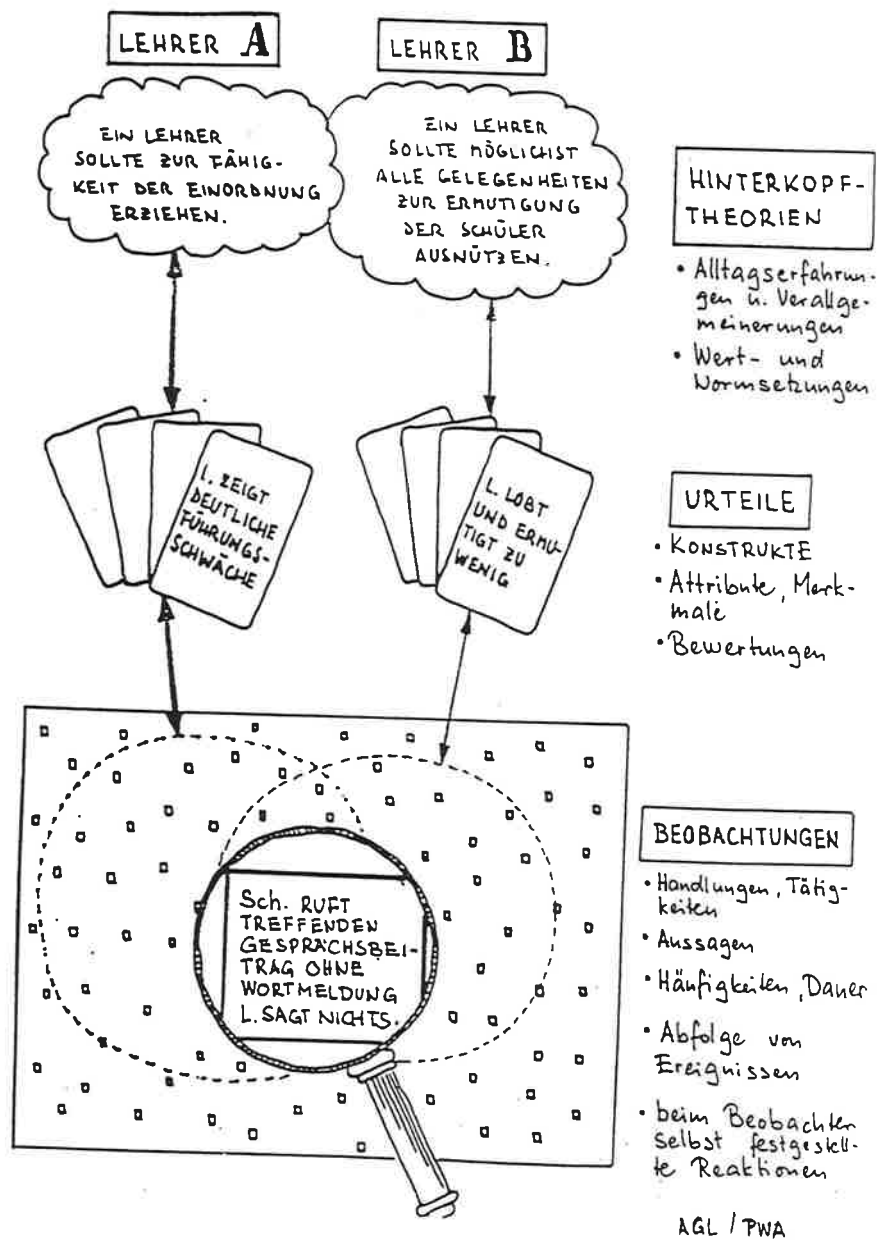 LEHRER A
LEHRER B
EIN LEHRER
SOLLTE ZUR FÄHIG-
KEIT DER EINORDNUNG
ERZIEHEN.
EIN LEHRER
SOLLTE MÖGLICHST
ALLE GELEGENHEITEN
ZUR ERMUTIGUNG
DER SCHÜLER
AUSNÜTZEN.
HINTERKOPF-
THEORIEN
• Alltagserfahrun-
gen u. Verallge-
meinerungen
• Wert- und
Normsetzungen
L. ZEIGT
DEUTLICHE
FÜHRUNGS-
SCHWÄCHE
L. LOBT
UND ERMU-
TIGT ZU
WENIG
URTEILE
• KONSTRUKTE
• Attribute, Merk-
male
• Bewertungen
Sch. RUFT
TREFFENDEN
GESPRÄCHSBEI-
TRAG OHNE
WORTMELDUNG
L. SAGT NICHTS.
BEOBACHTUNGEN
• Handlungen, Tätig-
keiten
• Aussagen
• Häufigkeiten, Dauer
• Abfolge von
Ereignissen
• beim Beobachter
selbst festgestell-
te Reaktionen
AGL / PWA